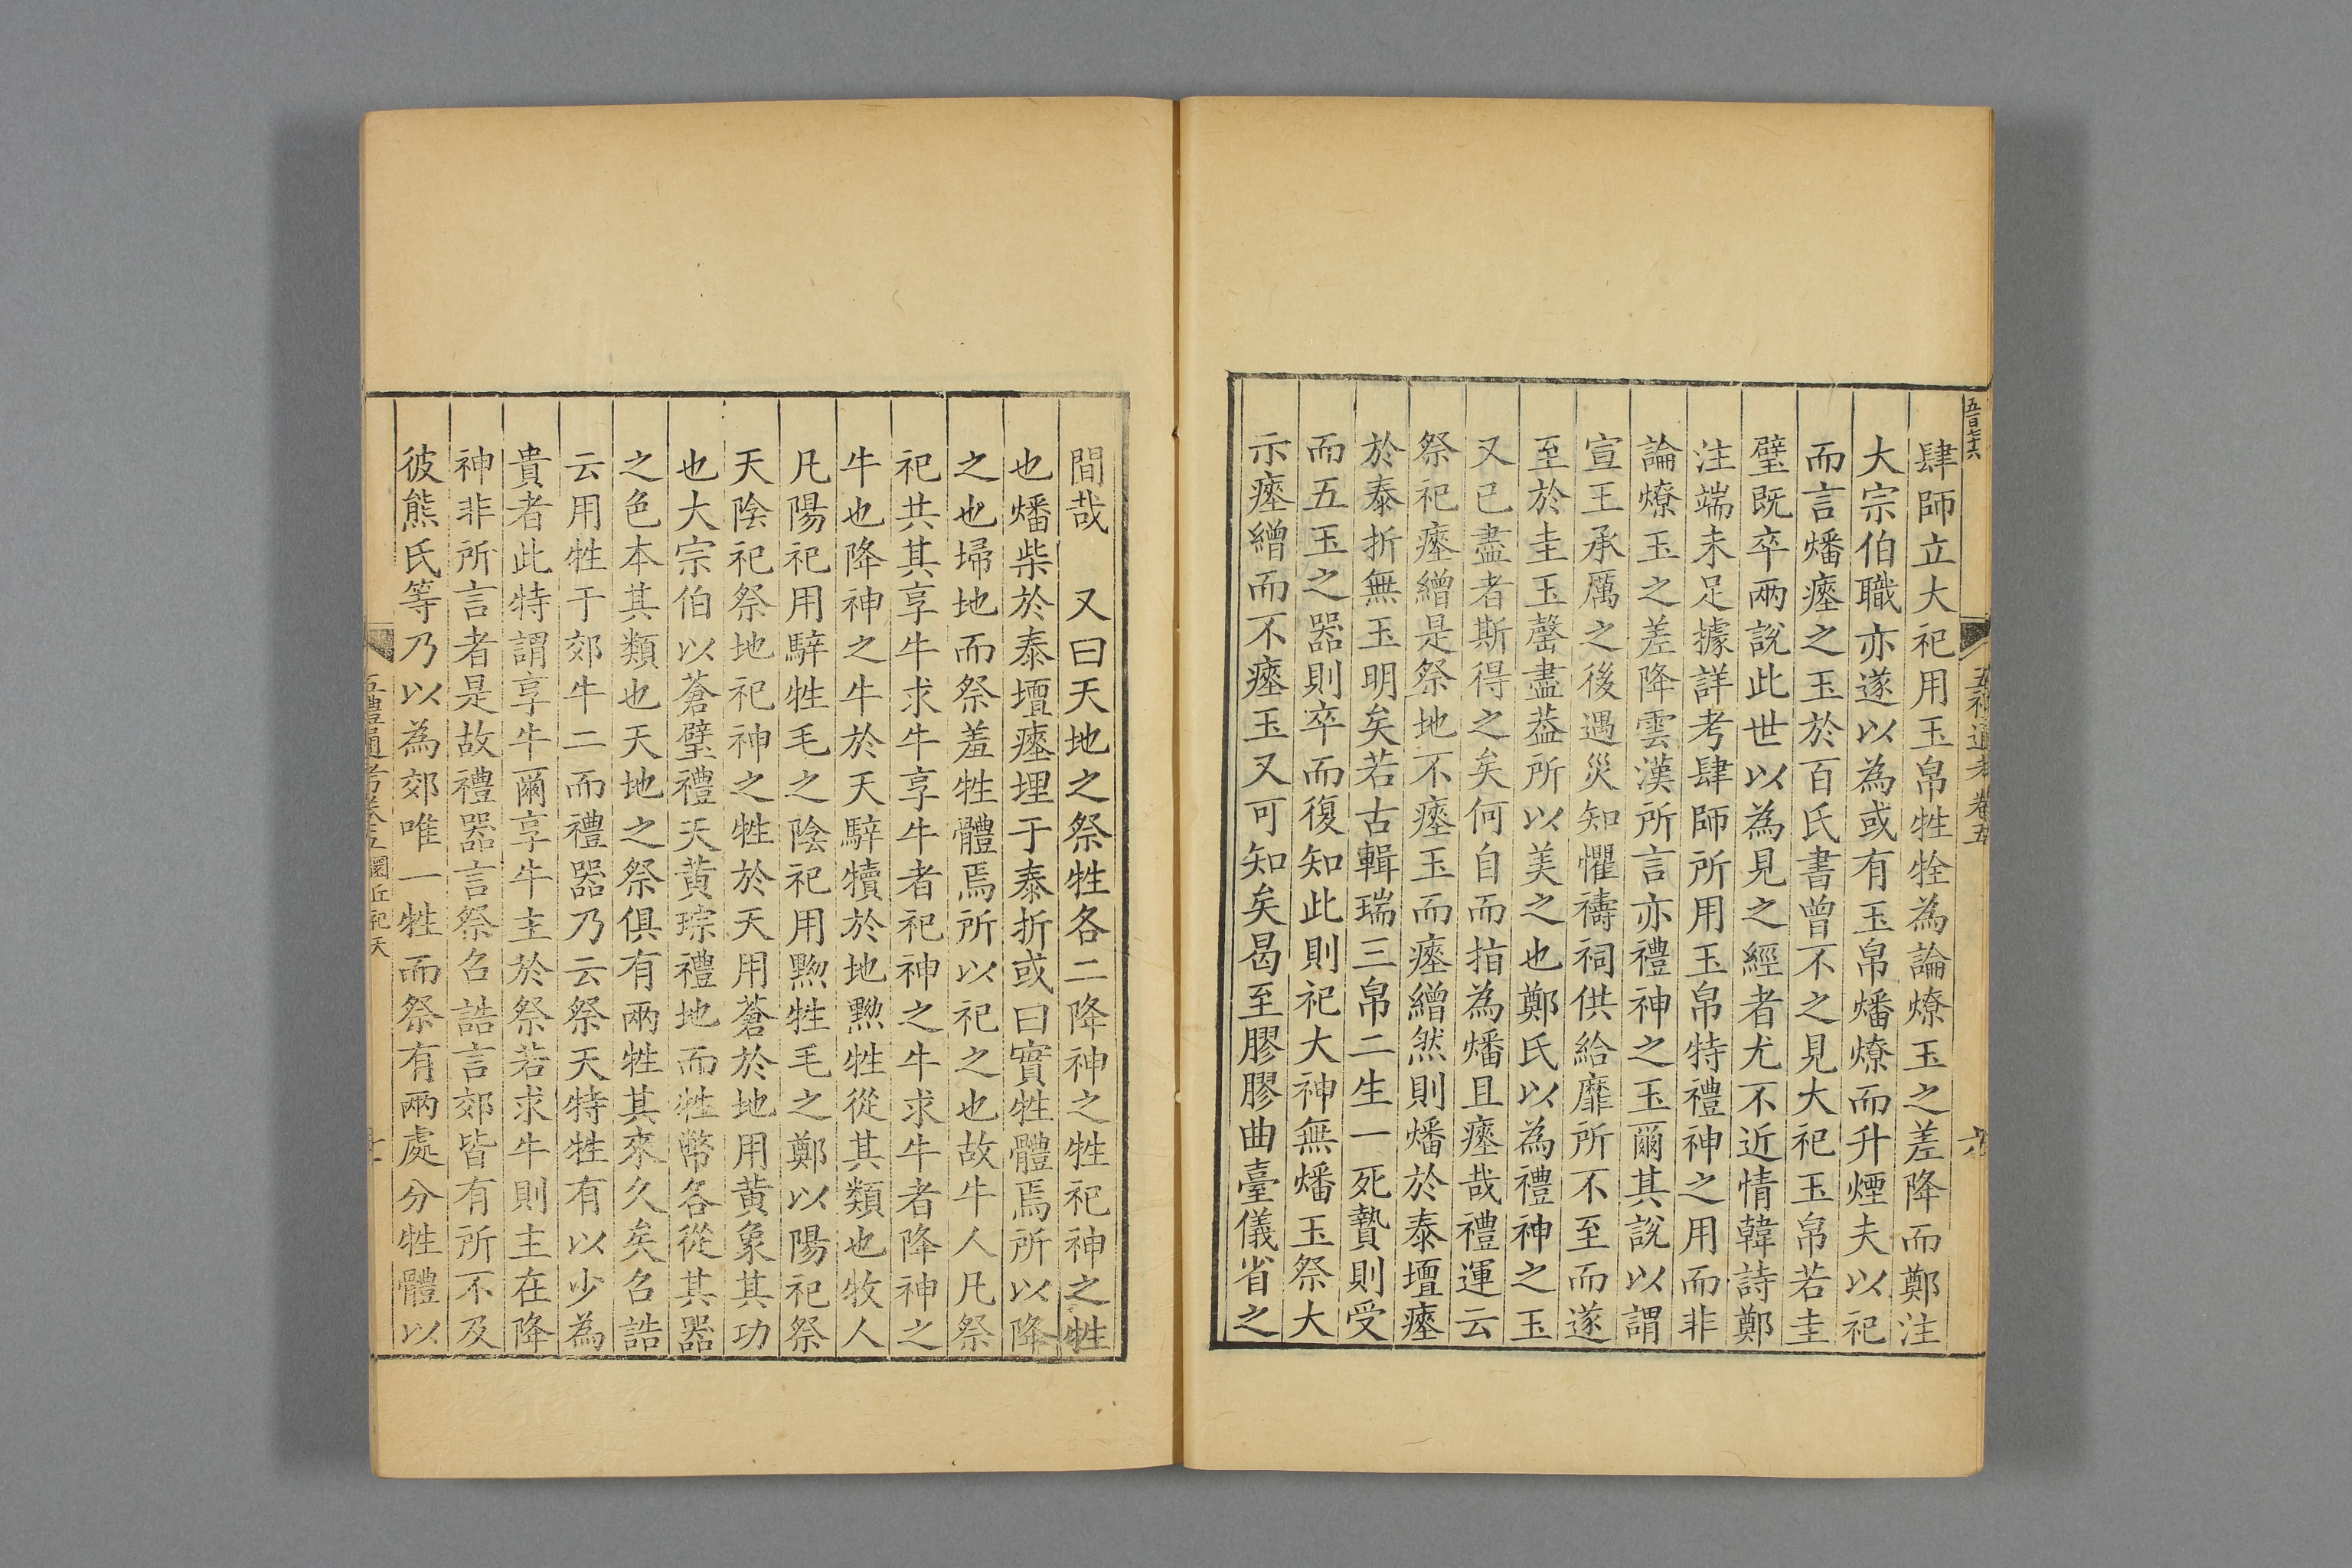 五百七十六
五禮通考卷五
六
肆師立大祀用玉帛牲牷為論燎玉之差降而鄭注
大宗伯職亦遂以為或有玉帛燔燎而升煙夫以祀
而言燔瘞之玉於百氏書曾不之見大祀玉帛若圭
璧既卒兩說此世以為見之經者尤不近情韓詩鄭
注端未足據詳考肆師所用玉帛特禮神之用而非
論燎玉之差降雲漢所言亦禮神之玉爾其說以謂
宣王承厲之後遇災知懼禱祠供給靡所不至而遂
至於圭玉罄盡葢所以美之也鄭氏以為禮神之玉
又已盡者斯得之矣何自而指為燔且瘞哉禮運云
祭祀瘞繒是祭地不瘞玉而瘞繒然則燔於泰壇瘞
於泰折無玉明矣若古輯瑞三帛二生一死贄則受
而五玉之器則卒而復知此則祀大神無燔玉祭大
示瘞繒而不瘞玉又可知矣曷至膠膠曲臺儀省之
間哉 又曰天地之祭牲各二降神之牲祀神之牲
也燔柴於泰壇瘞埋于泰折或曰實牲體焉所以降
之也埽地而祭羞牲體焉所以祀之也故牛人凡祭
祀共其享牛求牛享牛者祀神之牛求牛者降神之
牛也降神之牛於天騂犢於地黝牲從其類也牧人
凡陽祀用騂牲毛之陰祀用黝牲毛之鄭以陽祀祭
天陰祀祭地祀神之牲於天用蒼於地用黃象其功
也大宗伯以蒼璧禮天黃琮禮地而牲幣各從其器
之色本其類也天地之祭俱有兩牲其來久矣召誥
云用牲于郊牛二而禮器乃云祭天特牲有以少為
貴者此特謂享牛爾享牛主於祭若求牛則主在降
神非所言者是故禮器言祭召誥言郊皆有所不及
彼熊氏等乃以為郊唯一牲而祭有兩處分牲體以
五禮通考卷五圜丘祀天